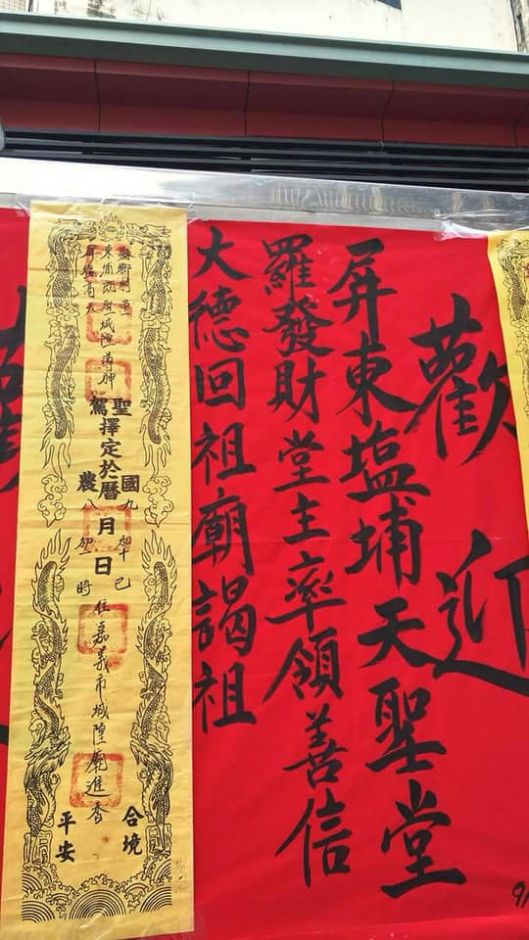 歡迎
屏東塩埔天聖堂
羅發財堂主率領善信
大德回祖廟謁祖
聖駕擇定於
國農曆
九八月日
巳時
往嘉義市城隍廟進香
合境平安
9/